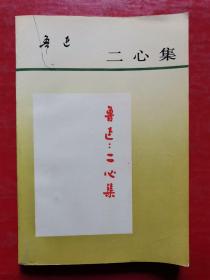 鲁迅
二心集
鲁迅：二心集